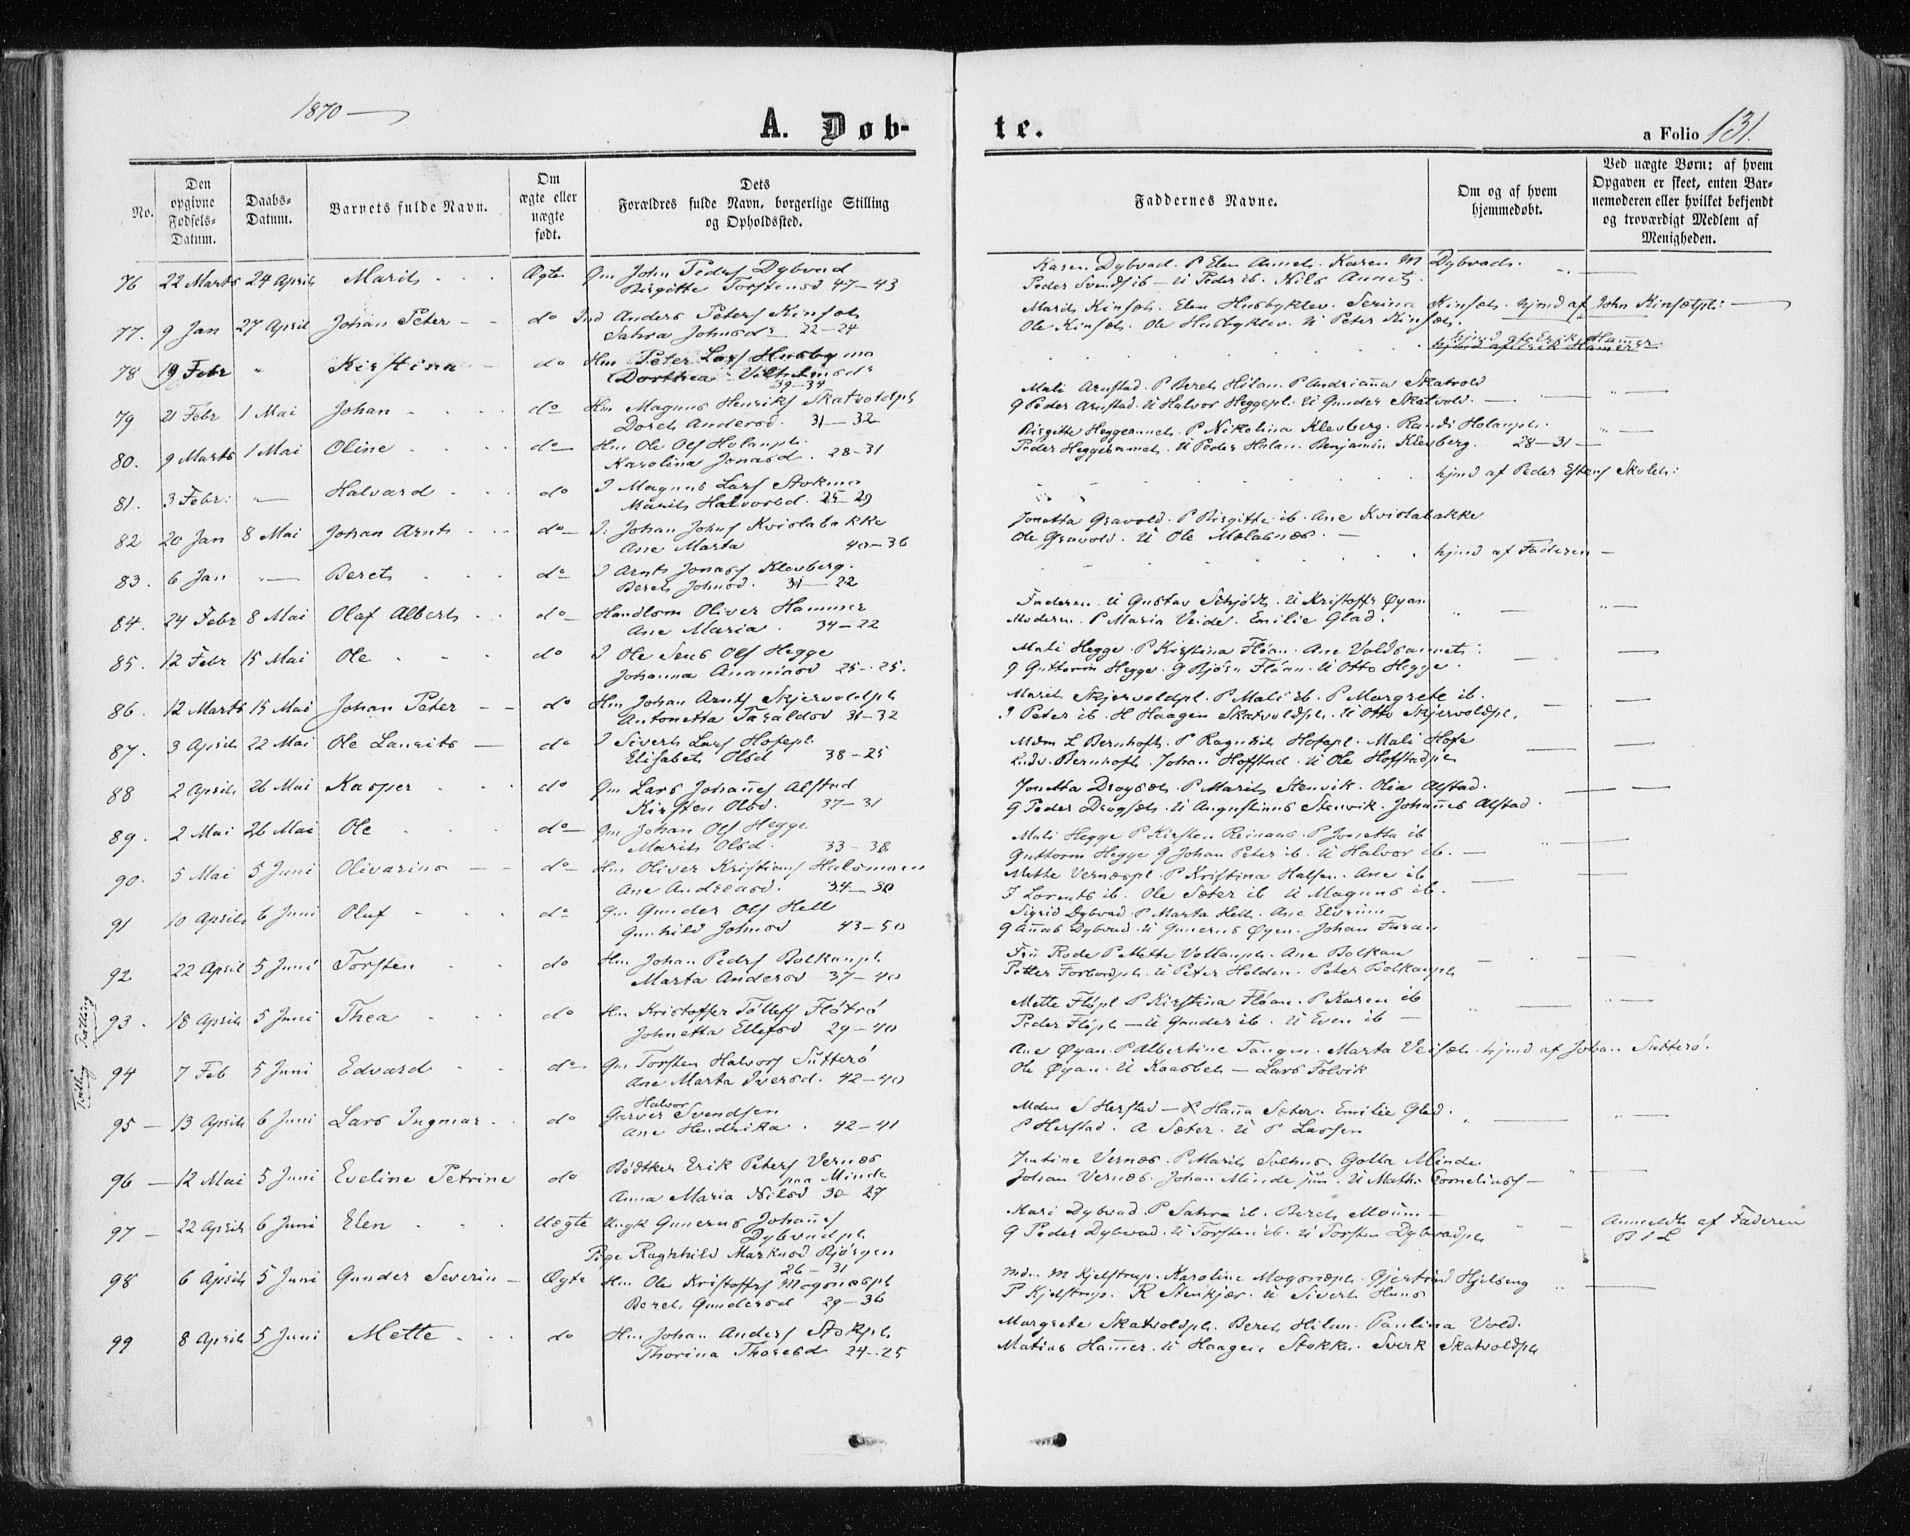 1870
A. Døb-
te.
a Folio 131.
No.
Den opgivne Fødsels-Datum.
Daabs-Datum.
Barnets fulde Navn.
Om ægte eller uægte født.
Dets Forældres fulde Navn, borgerlige Stilling og Opholdssted.
Faddernes Navne.
Om og af hvem hjemmedøbt.
Ved uægte Børn: af hvem Opgaven er skeet, enten Barnemoderen eller hvilket bekjendt og troværdigt Medlem af Menigheden.
76 22 Marts 24 April Marit Ægte Gm John Peders Dybvad
Birgitte Torstensd 47-43
Karen Dybvad. P Elen Karen M Dybvads.
Peder Svends ib - U Peder ib. Nils
77. 9 Jan 27 April Johan Peter do Ind Anders Peters Kinsæth
Sahra Johnsdr 22-24
Marit Kinsæth. Elen Husbyklev. Serina Kinsæth. hjmd af John Kinsætpl:
Ole Kinsæth. Ole Husbyklev. U Peter Kinsæth.
78 19 Febr " Kirstina do Hm Peter Lars Husbymo
Dorthea Vilhelmsdr
39-34
hjmd af Erik Hammer
79 21 Febr 1 Mai Johan do Hm Magnus Henriks Skatvoldpl
Doreth Andersd. 31-32
Mali Arnstad. P Bereth Hilan. P Andrianna Skatvold
G Peder Arnstad. U Halvor Heggepl. U Gunder Skatvold.
80. 9 Marts 1 Mai Oline do Hm Ole Ols Holanpl.
Karolina Jonasd. 28-31
Birgitte P Nikolina Klevberg. Randi Holanpl.
Peder U Peder Holan. Benjamin Klevberg. 28-31
81. 3 Febr: Halvard do I Magnus Lars Stokmo
Marit Halvorsd. 25-29
hjmd af Peder Estens Skoleh:
82 20 Jan 8 Mai Johan Arnt do I. Johan Johns Kvislabakke
Ane Marta 40-36
Jonetta Gravold. P Birgitte ib. Ane Kvislabakke
Ole Gravold. U Ole
83. 6 Jan Bereth do I Arnt Jonass Klevberg.
Bereth Johnsd. 31-22
hjmd af Faderen
84. 24 Febr 8 Mai Olaf Albert do Handlsm Oliver Hammer
Ane Maria. 34-22
Faderen. U Gustav Schjødt. U Kristoffr Øyan
Moderen. P Maria Veide. Emilie Glad.
85. 12 Febr 15 Mai Ole do I Ole Jens Ols Hegge
Johanna Ananiasd 25-25.
Mali Hegge. P Kirstina Fløan. Ane
G Guttorm Hegge. G Bjørn Fløan. U Otto Hegge.
86. 12 Marts 15 Mai Johan Peter do Hm Johan Arnts Skjervoldpl
Antonetta Taraldsd 31-32
Marit Skjervoldpl. P Mali ib. P Margrete ib.
I Peter ib. H Haagen Skatvoldpl. U Otto Skjervoldpl.
87. 3 April 22 Mai Ole Laurits do I Sivert Lars Hofepl.
Elisabeth Olsd 38-25
Mdm L Bernhoft. P Ragnhild Hofepl. Mali Hofe
Ludv. Bernhoft. Johan Hoffstad. U Ole Hoffstadpl
88 2 April 26 Mai Kasper do Gm Lars Johannes Alstad
Kirsten Olsd. 37-31
Jonetta Drogset. P Marit Stenvik. Olia Alstad.
G Peder Drogset. U Augustinus Stenvik. Johannes Alstad.
89. 2 Mai 26 Mai Ole do Gm Johan Ols Hegge
Marit Olsd. 33-38
Mali Hegge P Kirsten Reinaas. P Jonetta ib
Guttorm Hegge G Johan Peter ib. U Halvor ib.
90. 5 Mai 5 Juni Olivarius do Hm Oliver Kristians Halsmoen
Ane Andreasd. 34-30
Mette Vernespl. P Kristina Halsen. Ane ib
I Lorents ib. Ole Sæter ib. U Magnus ib.
91 10 April 6 Juni Olaf do Gm Gunder Ols Hell
Gunhild Johnsd 43-50
Sigrid Dybvad. P Marta Hell. Ane Elvrum
G Dybvad. U Gunerus Øyen. Johan
92 22 April 5 Juni Torsten do Hm Johan Peders Bolkanpl
Marta Andersd 37-40
Fru Rode P Mette Vollanpl. Ane Bolkan
Petter Forbordpl. U Peter Holden. Peter Bolkanpl
Tvilling
93. 18 April 5 Juni Thea do Hm Kristoffer Tølless Fløtrø
Johnetta Ellefsd 29-40
Mette Fløpl P Kirstina Fløan. P Karen ib
Peder Fløpl - U Gunder ib. U Even ib
Tvilling
94 7 Feb 5 Juni Edvard do Gm Torsten Halvors Sutterø
Ane Marta Iversd. 42-40
Ane Øyan. P Albertine Tangen. Marta Veiseth. hjmd af Johan Sutterø.
Ole Øyan. U Kaasbøl - Lars Folvik
95 13 April 6 Juni Lars Ingmar do Garver Halvor Svendsen
Ane Hendrikka. 42-41
Mdm S Herstad - P Hanna Sæter. Emilie Glad.
P Herstad. A Sæter. U P Larsen
96 12 Mai 5 Juni Eveline Petrine do Bødtker Erik Peters Vernæs
paa Minde
Anna Maria Nilsd 30-27
Justine Vernæs. P Marit Golla Minde
Johan Vernæs. Johan Minde jun. U Math. Cornelius
97 22 April 6 Juni Elen Uægte Ungk Gunerus Johannes
Dybvadpl.
Pige Ragnhild Marknsd Bjørgen
26-31
Kari Dybvad P Sahra ib. Bereth Moum
G Peder Dybvad. U Torsten ib. U Torsten Dybvadpl
Anmeldt af Faderen
B 1 L
98 6 April 5 Juni Gunder Severin Ægte Hm Ole Kristoffers Mogsnæspl
Bereth Gundersd 29-36
Mdm M Kjelstrup. Karoline Mogsnæspl. Gjertrud Hjelseng
P Kjelstrup. R Stenkjær. U Sivert
99 8 April 5 Juni Mette do Hm Johan Anders Stokpl
Thorina Thoresd 24-25
Margrete Skatvoldpl. Bereth Hilan. Paulina Vold.
Matias Hammer. U Haagen Stokke. Sverk Skatvoldpl